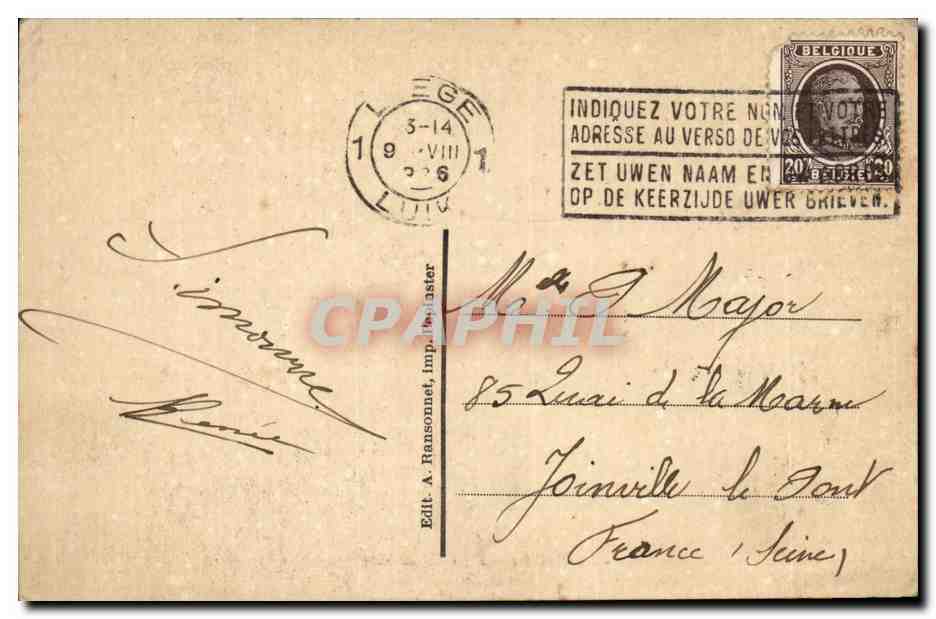 BELGIQUE
LIEGE
3-14
1 9 VIII 1
926
LUIK
INDIQUEZ VOTRE NOM ET VOTRE
ADRESSE AU VERSO DE VOS
ZET UWEN NAAM EN
OP DE KEERZIJDE UWER BRIEVEN.
20
Simonne.
Renée
Edit- A. Ransonnet, imp. Pepinster
CPAPHIL
Mde Major
85 Quai de la Marne
Joinville le Pont
France, Seine,